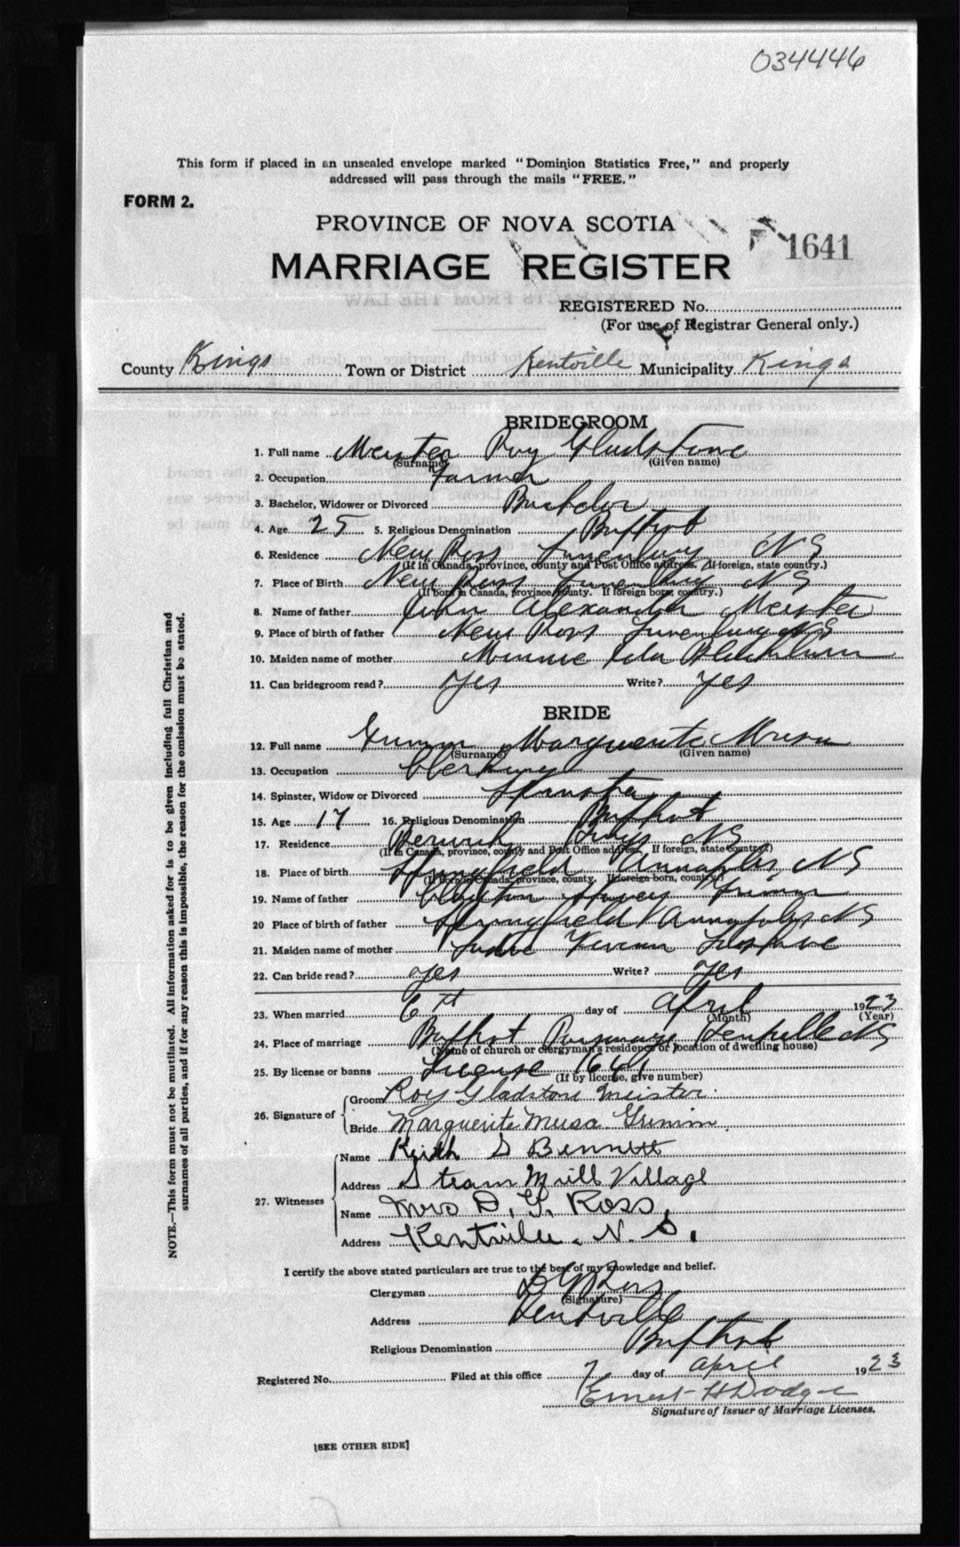 034446
This form if placed in an unsealed envelope marked "Dominion Statistics Free," and properly
addressed will pass through the mails "FREE."
FORM 2.
PROVINCE OF NOVA SCOTIA
1641
MARRIAGE REGISTER
REGISTERED No.
(For use of Registrar General only.)
County Kings Town or District Kentville Municipality Kings
BRIDEGROOM
1. Full name Meister Roy Gladstone
(Surname) (Given name)
2. Occupation Farmer
3. Bachelor, Widower or Divorced Bachelor
4. Age 25 5. Religious Denomination Baptist
6. Residence New Ross Lunenburg NS
(If in Canada, province, county and Post Office address. If foreign, state country.)
7. Place of Birth New Ross Lunenburg NS
(If born in Canada, province/county. If foreign born, country.)
8. Name of father John Alexander Meister
9. Place of birth of father New Ross Lunenburg NS
10. Maiden name of mother Minnie Ida
11. Can bridegroom read? yes Write? yes
BRIDE
12. Full name Grimm Marguerite Musa
(Surname) (Given name)
13. Occupation
14. Spinster, Widow or Divorced Spinster
15. Age 17 16. Religious Denomination Baptist
17. Residence Berwick Kings NS
(If in Canada, province, county and Post Office address. If foreign, state country.)
18. Place of birth Springfield Annapolis, NS
(If born in Canada, province, county. If foreign born, country.)
19. Name of father Harvey Grimm
20 Place of birth of father Springfield Annapolis NS
21. Maiden name of mother Vivian
22. Can bride read? yes Write? yes
23. When married 6th day of April 1923
(Month) (Year)
24. Place of marriage Baptist Parsonage Kentville NS
(Name of church or clergyman's residence or location of dwelling house)
25. By license or banns License 1641
(If by license, give number)
26. Signature of
Groom Roy Gladstone Meister
Bride Marguerite Musa Grimm.
27. Witnesses
Name Keith S Bennett
Address Steam Mill Village
Name Mrs D. G. Ross,
Address Kentville. N. S.
I certify the above stated particulars are true to the best of my knowledge and belief.
Clergyman D G Ross
(Signature)
Address Kentville
Religious Denomination Baptist
Registered No. Filed at this office 7 day of April 1923
Ernest H Dodge
Signature of Issuer of Marriage Licenses.
[SEE OTHER SIDE]
NOTE.—This form must not be mutilated. All information asked for is to be given including full Christian and
surnames of all parties, and if for any reason this is impossible, the reason for the omission must be stated.